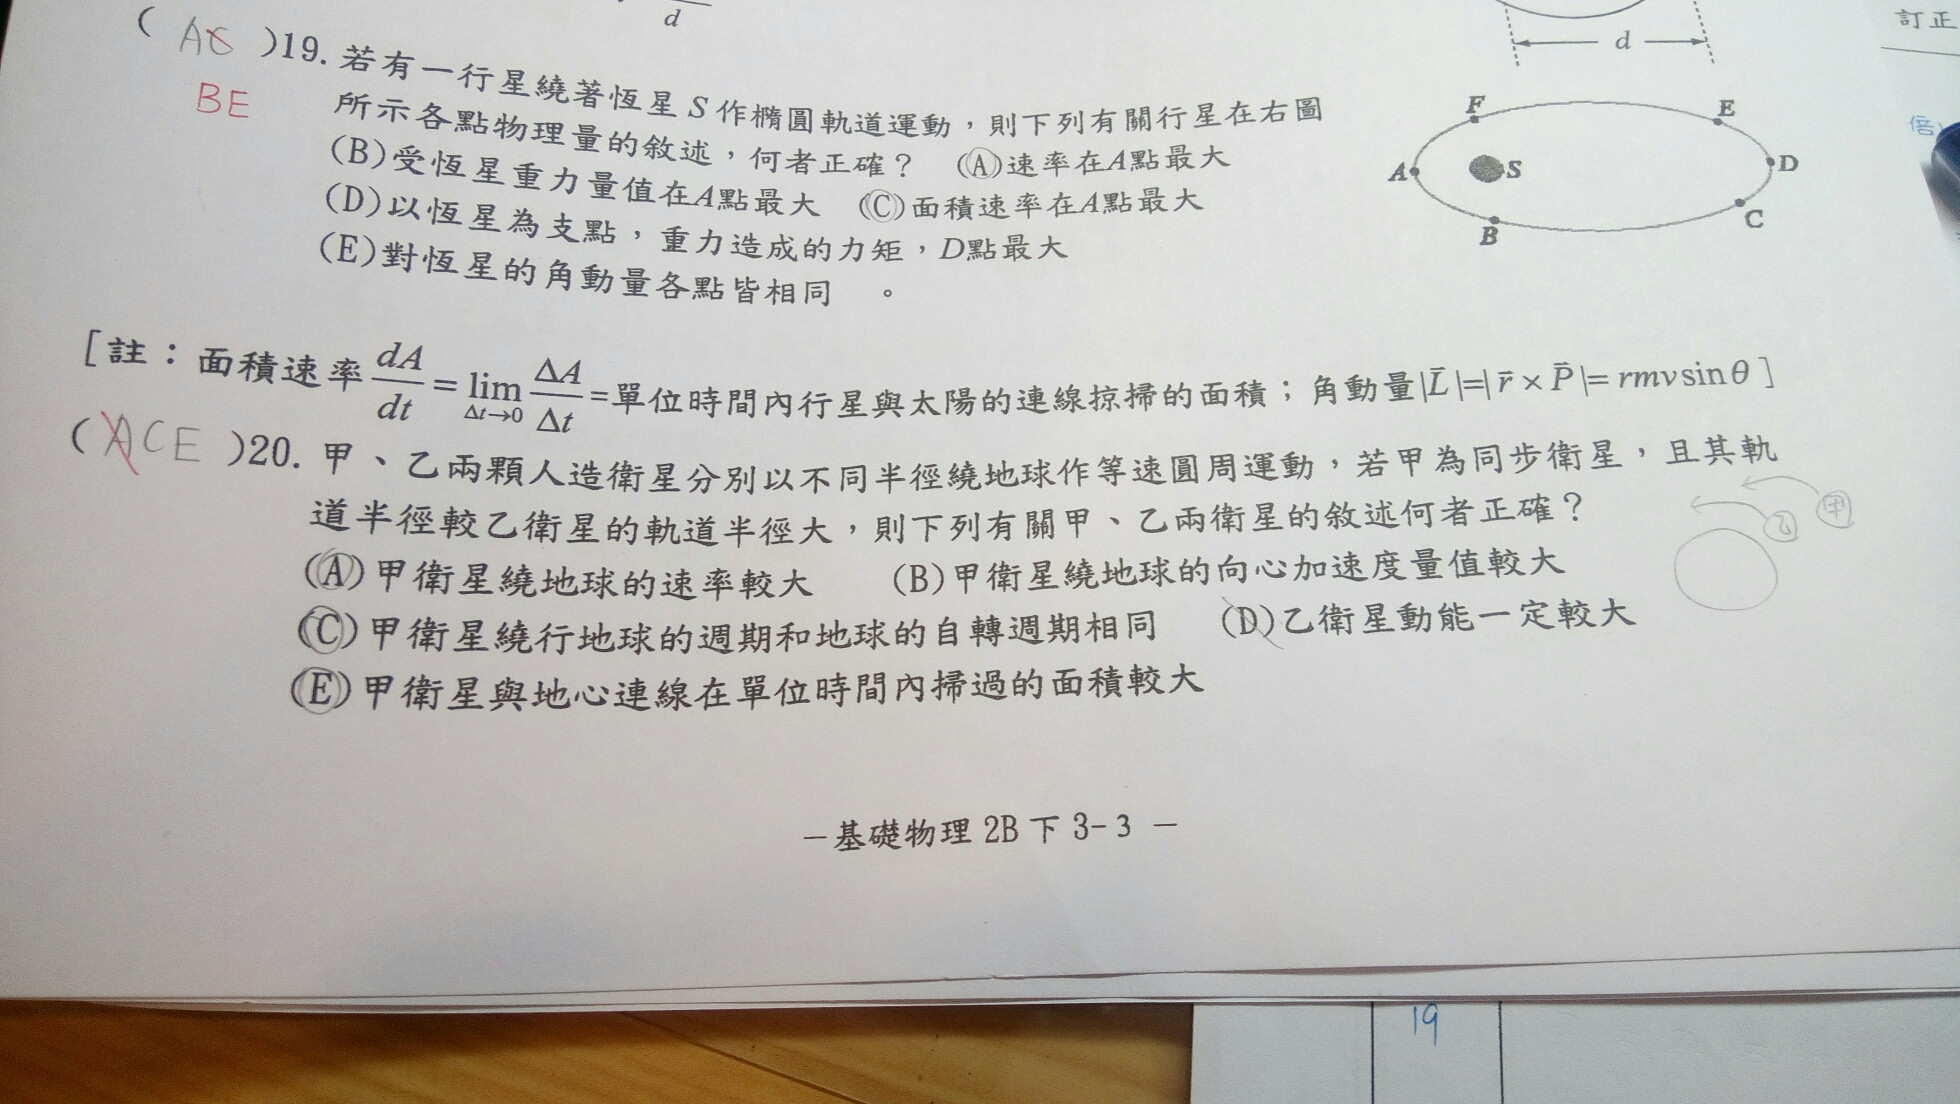 d
d
訂正
( AC )19. 若有一行星繞著恆星 S 作橢圓軌道運動，則下列有關行星在右圖
BE
所示各點物理量的敘述，何者正確？ (A)速率在A點最大
(B)受恆星重力量值在A點最大 (C)面積速率在A點最大
(D)以恆星為支點，重力造成的力矩，D點最大
(E)對恆星的角動量各點皆相同 。
F
E
倍
A
S
D
B
C
[註：面積速率 dA/dt = lim Δt→0 ΔA/Δt =單位時間內行星與太陽的連線掠掃的面積；角動量|L̄|=|r̄×P̄|= rmv sinθ ]
( ACE )20. 甲、乙兩顆人造衛星分別以不同半徑繞地球作等速圓周運動，若甲為同步衛星，且其軌
道半徑較乙衛星的軌道半徑大，則下列有關甲、乙兩衛星的敘述何者正確？
甲
乙
(A)甲衛星繞地球的速率較大 (B)甲衛星繞地球的向心加速度量值較大
(C)甲衛星繞行地球的週期和地球的自轉週期相同 (D)乙衛星動能一定較大
(E)甲衛星與地心連線在單位時間內掃過的面積較大
－基礎物理 2B 下 3-3 －
19